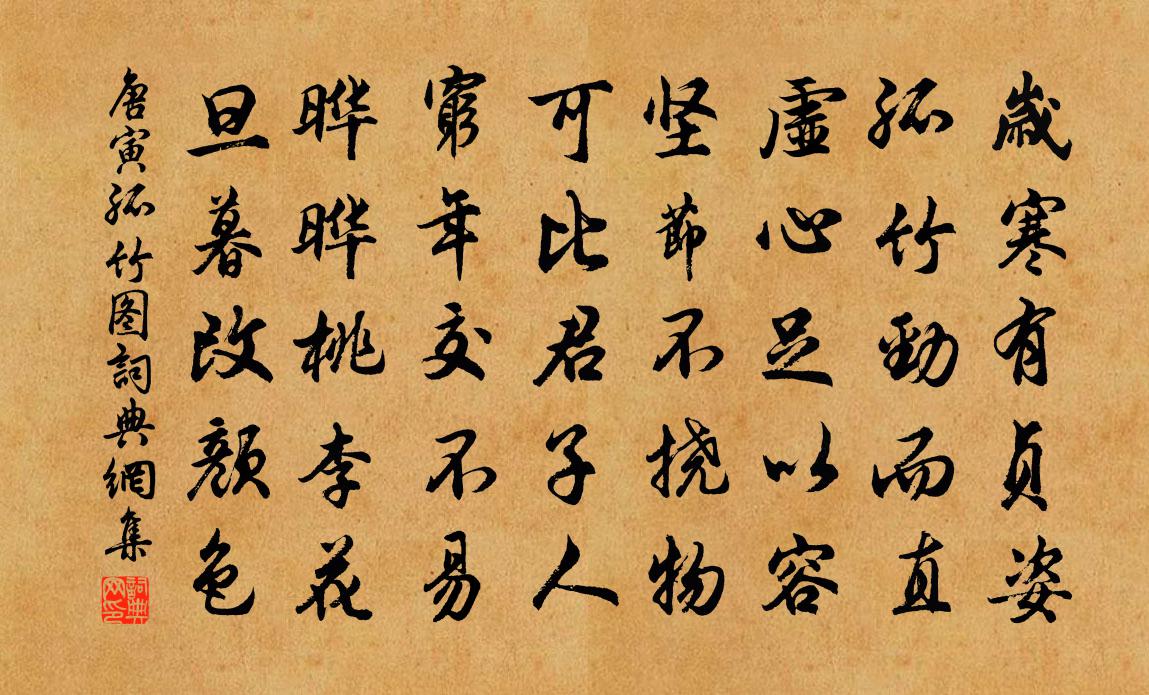 歳寒有貞姿
孤竹勁而直
虛心足以容
坚節不撓物
可比君子人
窮年交不易
晔晔桃李花
旦暮改顔色
唐寅孤竹图詞典網集
詞典网印